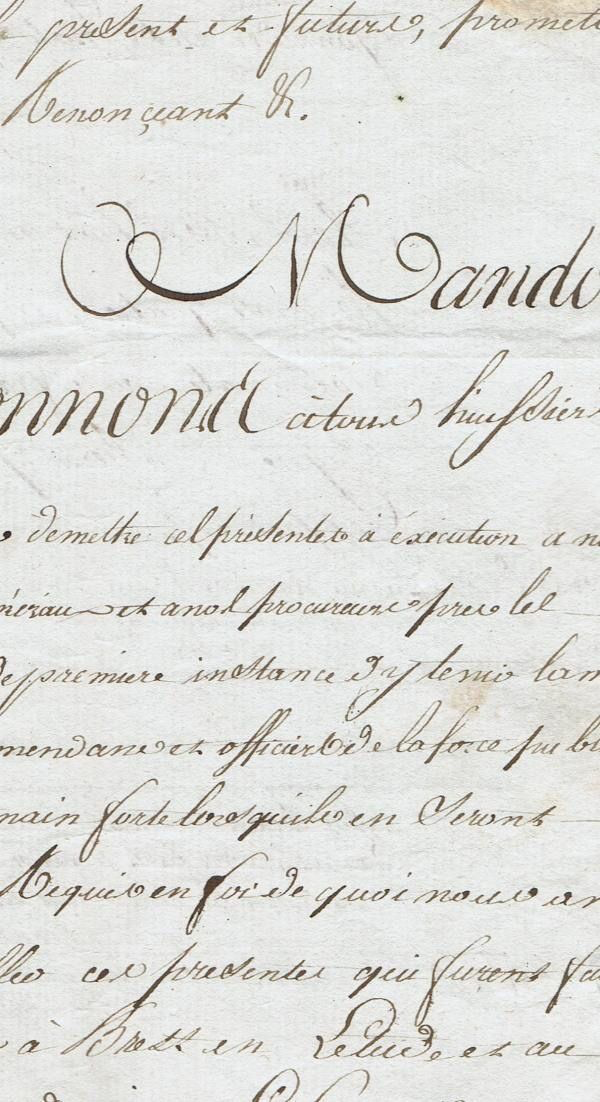 present et future, promett
Renonçant &.
Mando
onnons à tous huissier
demettre ces presentes à éxécution a n
néraux et a nos procureurs pres les
de premiere instance d'y tenir la m
mendans et officiers de la force publ
main forte lorsquils en Seront
Requis en foi de quoi nous a
llé ces presentes qui furent fa
à Brest en L'etude et au